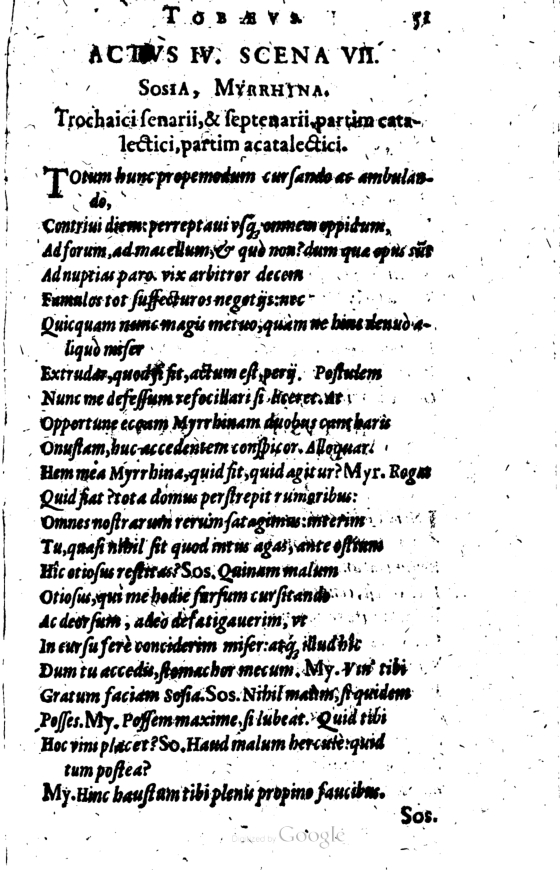 TOBÆVS. 51
ACTVS IV. SCENA VII.
SOSIA, MYRRHINA.
Trochaici senarii,& septenarii,partim cata-
lectici,partim acatalectici.
TOtum hunc propemodum cursando ac ambulan-
do,
Contriui diem:perreptaui vsq; omnem oppidum,
Ad forum,ad macellum,& quò non?dum qua opus sũt
Ad nuptias paro. vix arbitror decem
Famulos tot suffecturos negotijs:nec
Quicquam nunc magis metuo,quàm ne hinc denuò a-
liquò miser
Extrudar,quod si fit,actum est,perij. Postulem
Nunc me defessum refocillari si liceret. At
Opportune eccam Myrrhinam duobus cantharis
Onustam,huc accedentem conspicor. Alloquar.
Hem mea Myrrhina,quid fit,quid agitur? Myr. Rogas
Quid fiat?tota domus perstrepit rumoribus:
Omnes nostrarum rerum satagimus:interim
Tu,quasi nihil sit quod intus agas,ante ostium
Hic otiosus restitas?Sos. Quinam malum
Otiosus,qui me hodie sursum cursitando
Ac deorsum, adeo defatigauerim, vt
In cursu ferè conciderim miser:atq; illud hic
Dum tu accedis,stomachor mecum. My. Vin' tibi
Gratum faciam Sosia.Sos. Nihil malim,si quidem
Posses.My. Possem maxime,si lubeat. Quid tibi
Hoc vini placet?So.Haud malum hercule:quid
tum postea?
My.Hinc haustum tibi plenis propino faucibus.
Sos.
Digitized by Google